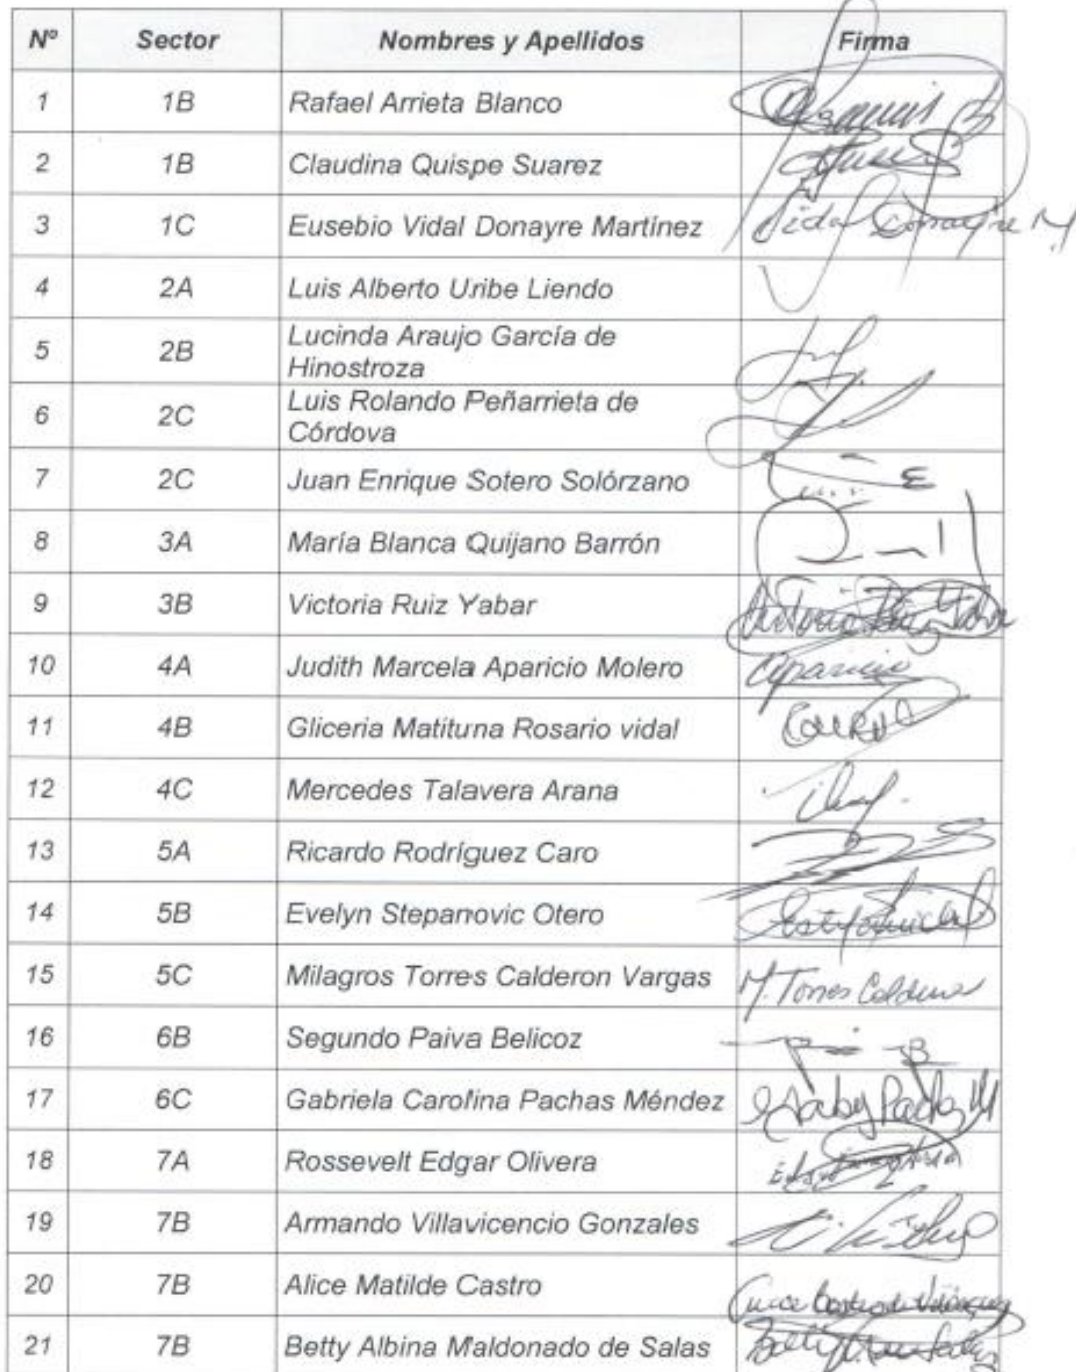 Nº Sector Nombres y Apellidos Firma
1 1B Rafael Arrieta Blanco
2 1B Claudina Quispe Suarez
3 1C Eusebio Vidal Donayre Martínez Vidal Donayre M
4 2A Luis Alberto Uribe Liendo
5 2B Lucinda Araujo García de
Hinostroza
6 2C Luis Rolando Peñarrieta de
Córdova
7 2C Juan Enrique Sotero Solórzano
8 3A María Blanca Quijano Barrón
9 3B Victoria Ruiz Yabar Victoria Ruiz Yabar
10 4A Judith Marcela Aparicio Molero Aparicio
11 4B Gliceria Matituna Rosario vidal
12 4C Mercedes Talavera Arana
13 5A Ricardo Rodríguez Caro
14 5B Evelyn Stepanovic Otero
15 5C Milagros Torres Calderon Vargas M. Torres Calderon
16 6B Segundo Paiva Belicoz
17 6C Gabriela Carolina Pachas Méndez Gaby Pachas M
18 7A Rossevelt Edgar Olivera
19 7B Armando Villavicencio Gonzales
20 7B Alice Matilde Castro
21 7B Betty Albina Maldonado de Salas